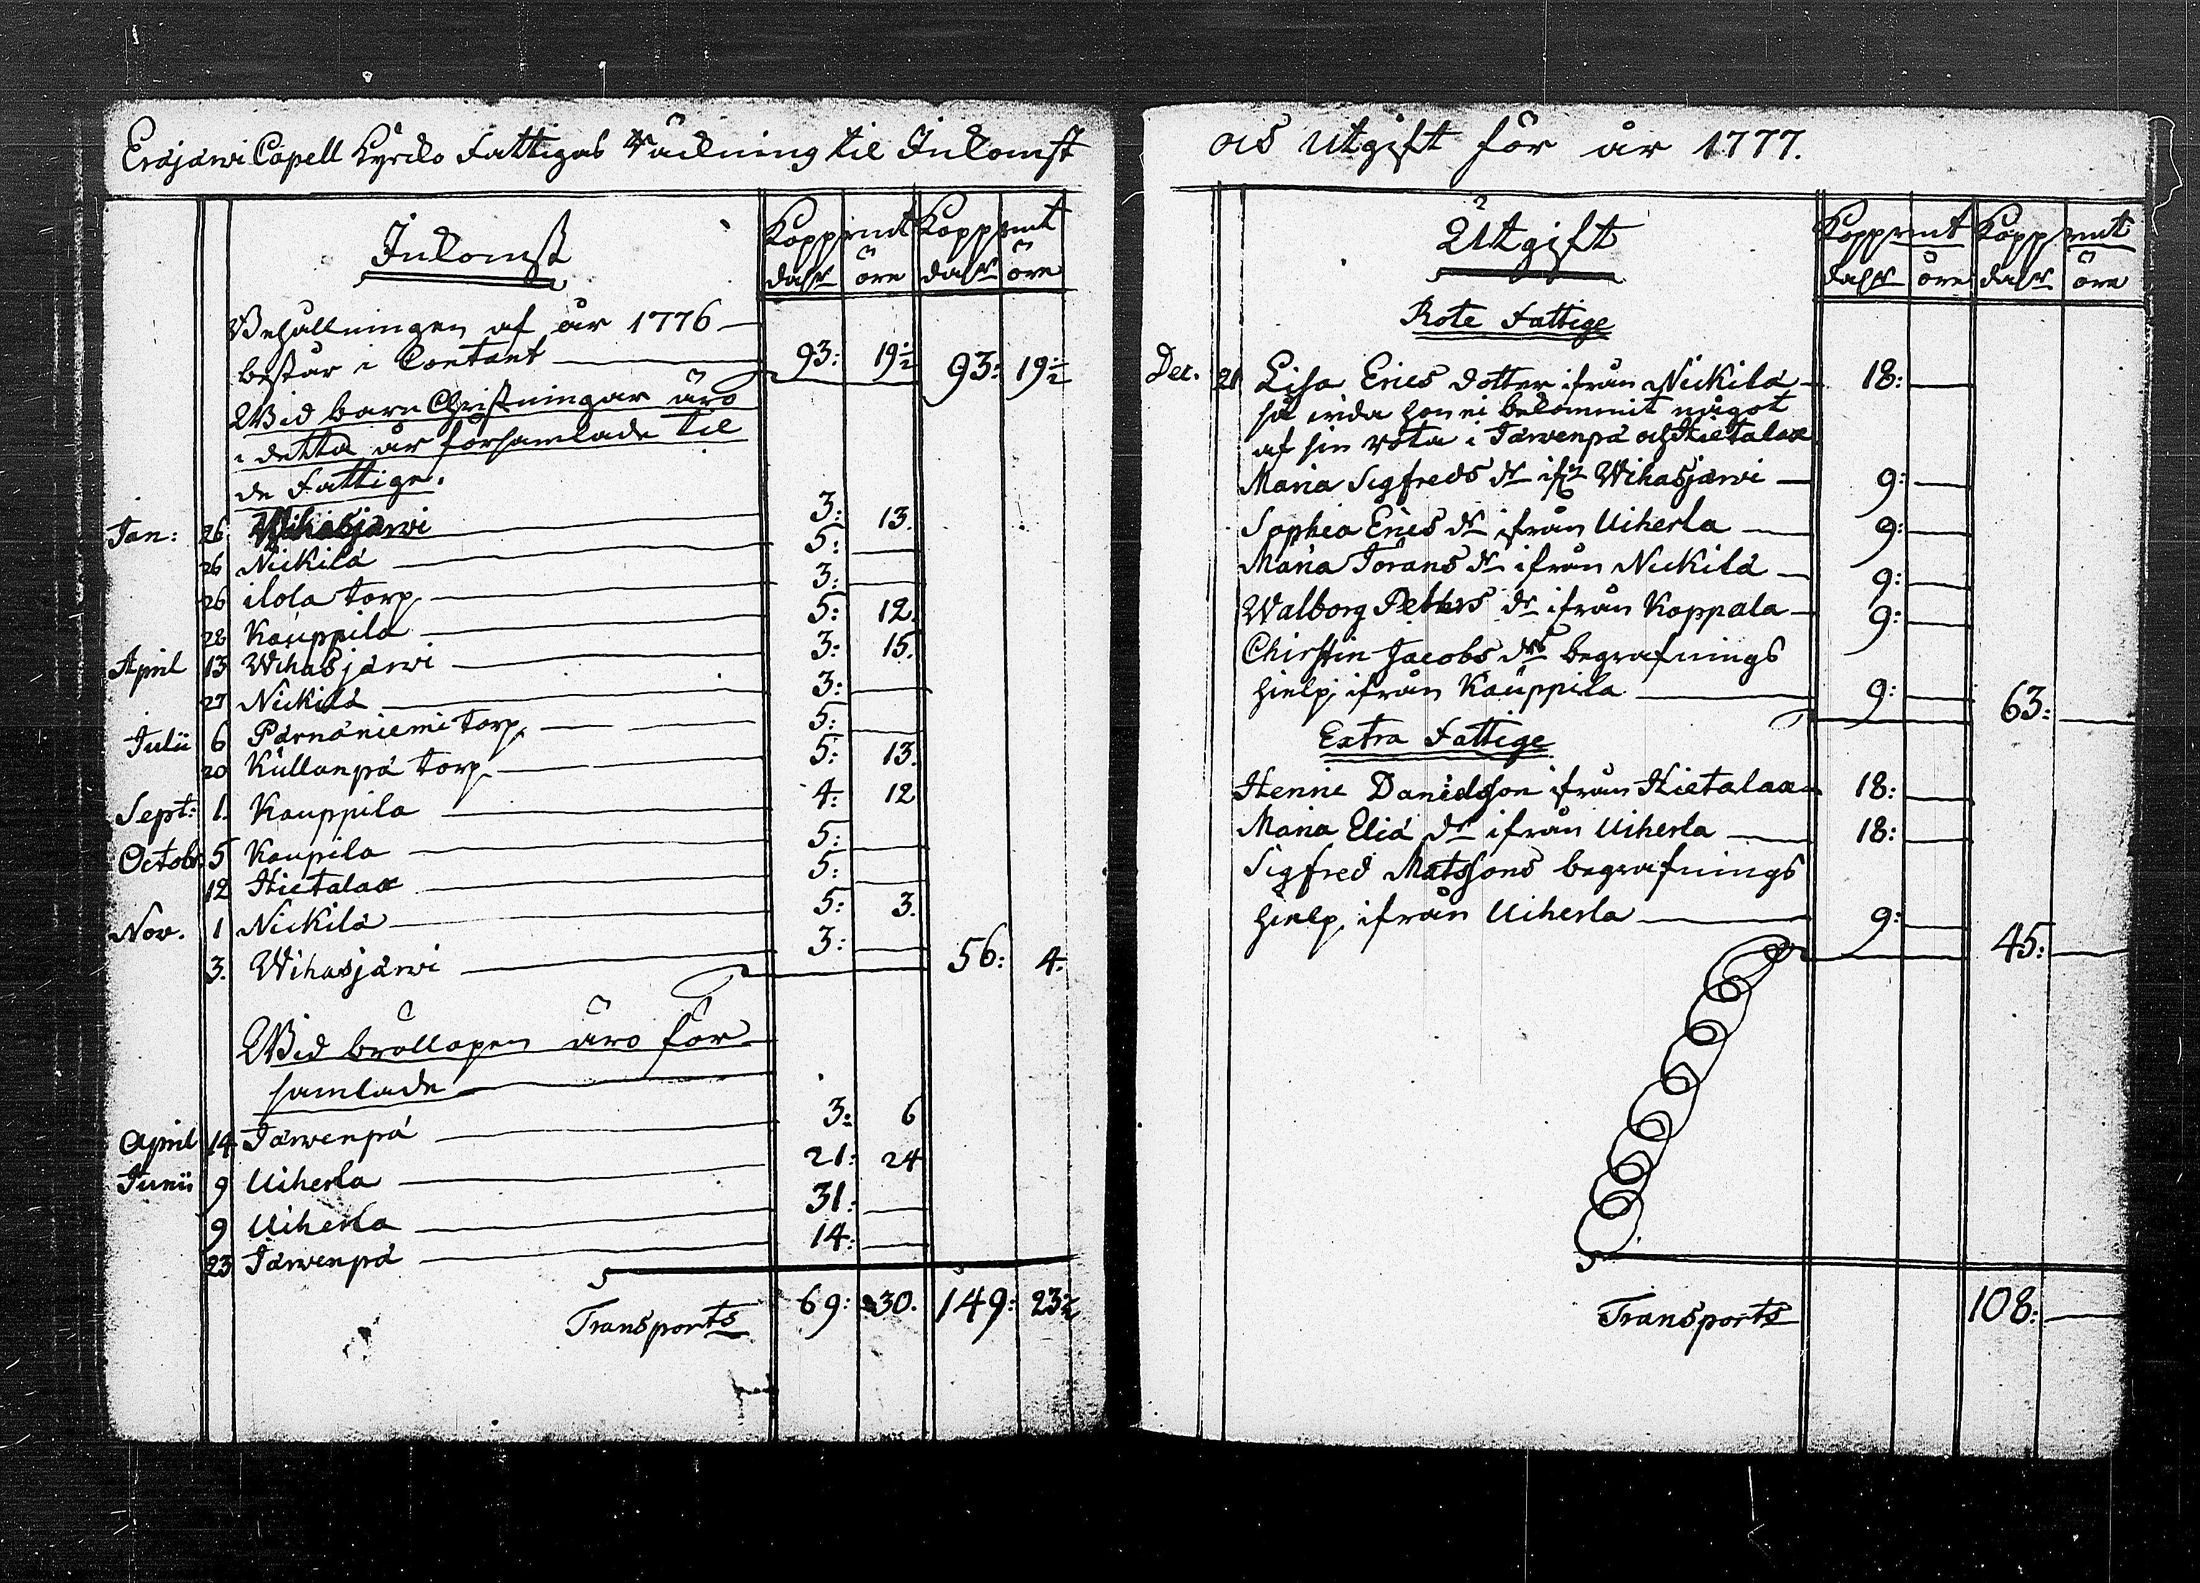 Eräjärwi Capell Kyrko Fattigas Räckning til Inkomst
Inkomst
Kopp rmt Kopp rmt
dalr öre dalr öre
Behållningen af år 1776 —
består i Contant — 93: 19½ 93: 19½
Wid barn Christningar äro
i detta år församlade til
de Fattige.
Jan: 26. Wihasjärwi — 3: 13.
26 Nickilä — 5: —
26 ilola torp — 3: —
28 Kauppila — 5: 12.
April 13 Wihasjärwi — 3: 15.
27 Nickilä — 3: —
Julii 6 Pärnäniemi torp — 5: —
20 Kullanpä torp — 5: 13.
Sept: 1. Kauppila — 4: 12
Octobr 5 Kaupila — 5: —
12 Hietalax — 5: —
Nov. 1 Nickilä — 5: 3.
3. Wihasjärwi — 3: — 56: 4:
Wid bröllopen äro för
samlade —
April 14 Järwenpä — 3: 6
Junii 9 Uiherla — 21: 24
9 Uiherla — 31: —
23 Järwenpä — 14: —
Transports 69: 30. 149: 23½
och Utgift för år 1777.
Utgift
Kopp rmt Kopp rmt
dalr öre dalr öre
Rote Fattige
Dec. 21 Lisa Erics dotter ifrån Nickilä — 18: —
så enda hon ei bekommit något
af sin rota i Järwenpä och Hietalax
Maria Sigfreds dr ifr Wihasjärwi — 9: —
Sophia Erics dr ifrån Uiherla — 9: —
Maria Jörans dr ifrån Nickilä — 9: —
Walborg Peters dr ifrån Koppala — 9: —
Chirstin Jacobs drs begrafnings
hielp ifrån Kauppila — 9: — 63: —
Extra Fattige
Henric Danielsson ifrån Hietalax — 18: —
Maria Eliä dr ifrån Uiherla — 18: —
Sigfred Matssons begrafnings
hielp ifrån Uiherla — 9: — 45: —
Transports 108: —